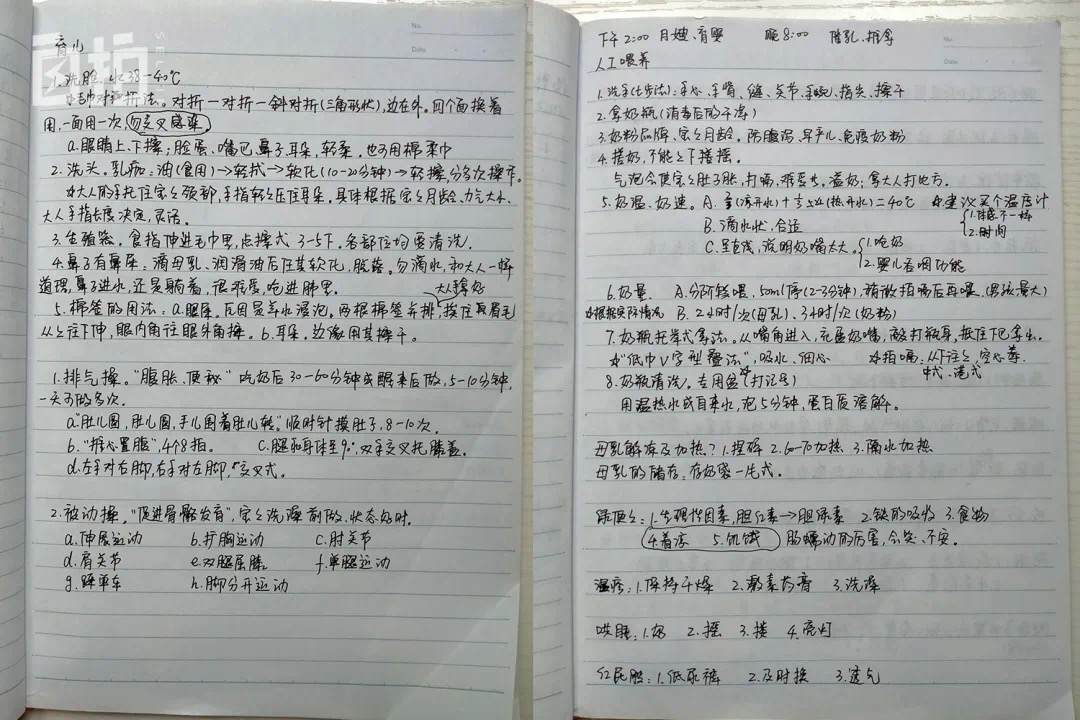 育儿
1.洗脸.水38-40℃
☆毛巾对折折法。对折一对折一斜对折(三角形状),边在外。四个面换着
用,一面用一次,勿交叉感染
a.眼睛上、下擦;脸蛋、嘴巴、鼻子、耳朵,轻柔,也可用棉柔巾
2.洗头。乳痂:油(食用)→轻拭→软化(10-20分钟)→轻擦,分多次操作。
☆大人的手托住宝宝颈部,手指轻轻压住耳朵。具体根据宝宝月龄、力气大小、
大人手指长度决定,灵活。
3.生殖器。食指伸进毛巾里,点擦式3-5下。各部位均要清洗.
4.鼻子有鼻屎:滴母乳、润滑油后任其软化,脱落。勿滴水,和大人一样
道理,鼻子进水,还是躺着,很难受,呛进肺里.
5.棉签的用法:a.眼屎。应因是羊水浸泡。两根棉签并排,挨住
大人拿好
眉毛
从上往下伸,眼内角往眼外角擦。b.耳朵.边缘用其擦干。
1.排气操。"腹胀、便秘"吃奶后30-60分钟或醒来后做,5-10分钟,
一天可做多次.
a."肚儿圆,肚儿圆,手儿围着肚儿转。"顺时针摸肚子,8-10次.
b.4个8拍.
c.腿和身体呈90°,双手交叉托膝盖。
d.左手对右脚,右手对左脚,"交叉式。
2.被动操。"促进骨骼发育",宝宝洗澡前做、状态好时.
a.伸展运动 b.扩胸运动 c.肘关节
d.肩关节 e.双腿屈膝. f.单腿运动
g.蹬单车 h.脚分开运动
下午2:00 月嫂、育婴 晚8:00 催乳、推拿
人工喂养
1.洗手(七步法):手心、手背、缝、关节、手腕、指尖、擦干
2.拿奶瓶(消毒后的干净)
3.奶粉品牌、宝宝月龄。防腹泻、早产儿、免疫奶粉
4.摇奶,不能上下摇摇。
气泡会使宝宝肚子胀,打嗝,难受哭,溢奶;拿大人打比方.
5.奶温、奶速。A.(凉开水)+(热开水)=40℃ ☆建议买个温度计
1.体感不一样
2.时间
B.滴水状,合适
C.呈直线,说明奶嘴太大。
1.呛奶
2.婴儿吞咽功能
6.奶量. A.分阶段喂,50ml停(2-3分钟),稍微拍嗝后再喂.(男孩量大)
☆根据实际情况 B.2小时/次(母乳)、3小时/次(奶粉)
7.奶瓶托举式拿法。从嘴角进入,充盈奶嘴,敲打瓶身,抵住下巴拿出.
☆"纸巾V字型叠法",吸水、细心 ☆拍嗝:从下往上,空心拳.
中式、港式
8.奶瓶清洗。专用盆(打记号)
用温热水或自来水,泡5分钟,蛋白质溶解。
母乳解冻及加热?1.捏碎 2.60-70加热 3.隔水加热
母乳的储存:存奶袋一片式.
绿便便:1.生理性因素,胆红素→胆绿素 2.铁的吸收 3.食物
4.着凉 5.饥饿 肠蠕动的厉害,会哭、不安.
湿疹:1.保持干燥 2.激素药膏 3.洗澡
哄睡:1.奶 2.摇 3.搂 4.亮灯
红屁股:1.纸尿裤 2.及时换 3.透气